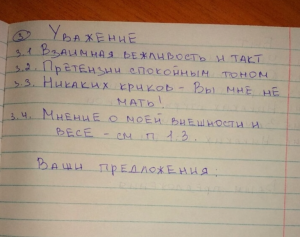 3 Уважение
3.1 Взаимная вежливость и такт
3.2 Претензии спокойным тоном
3.3 Никаких криков - Вы мне не
мать!
3.4. Мнение о моей внешности и
весе - см п. 1.3.
Ваши предложения.